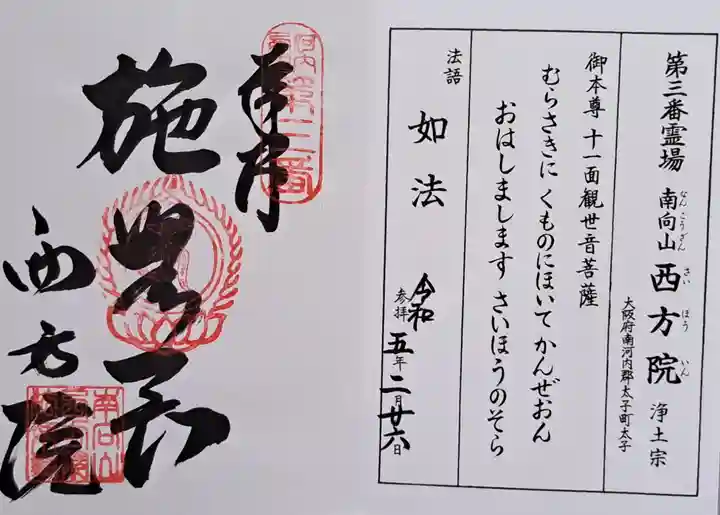 第三番霊場 南向山 西方院 浄土宗
なんこうざん さいほういん
大阪府南河内郡太子町太子
御本尊 十一面観世音菩薩
むらさきに くものにほいて かんぜおん
おはしまします さいほうのそら
法語 如法
参拝 令和五年二月廿六日
奉拝
河内 第三番
施無畏
西方院